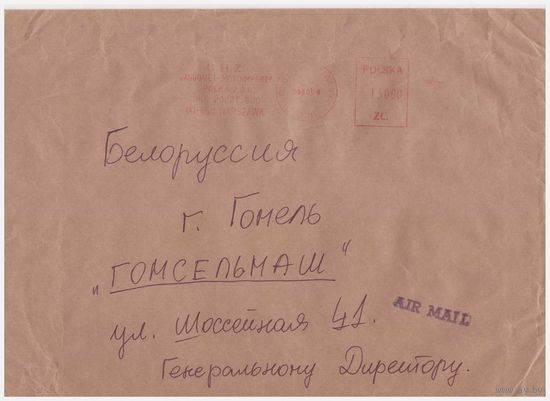 C.H.Z.
POLSKA
ZŁ.
WARSZAWA
Белоруссия
г. Гомель
„ГОМСЕЛЬМАШ"
ул. Шоссейная 41.
AIR MAIL
Генеральному Директору.